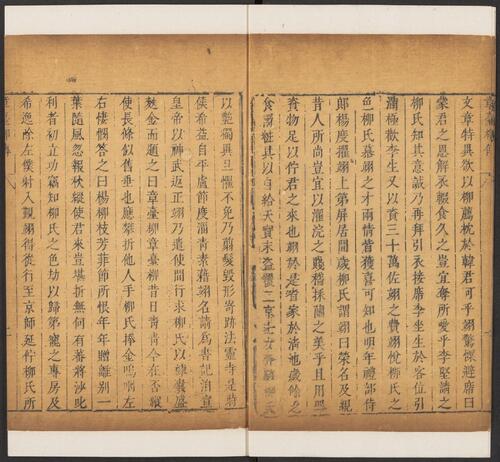 文章特異欲以柳薦枕於韓君可乎翃驚慄避席曰
蒙君之恩解衣輟食久之豈宜奪所愛乎李堅請之
柳氏知其意誠乃再拜引衣接席李坐翃於客位引
滿極歡李生又以資三十萬佐翃之費翃悅柳氏之
色柳氏慕翃之才兩情皆獲喜可知也明年禮部侍
郎楊度擢翃上第屏居間歲柳氏謂翃曰榮名及親
昔人所尚豈宜以濯浣之賤稽採蘭之美乎且用器
資物足以佇君之來也翃於是省家於清池歲餘乏
食鬻粧具以自給天寶末盜覆二京士女奔駭柳氏
以艷獨異且懼不免乃剪髮毀形寄跡法靈寺是時
侯希逸自平盧節度淄青素藉翃名請為書記洎宣
皇帝以神武返正翃乃遣使間行求柳氏以練囊盛
麩金而題之曰章臺柳章臺柳昔日青青今在否縱
使長條似舊垂也應攀折他人手柳氏捧金嗚咽左
右悽憫答之曰楊柳枝芳菲節所恨年年贈離別一
葉隨風忽報秋縱使君來豈堪折無何有蕃將沙吒
利者初立功竊知柳氏之色劫以歸第寵之專房及
希逸除左僕射入覲翃得從行至京師延佇柳氏所